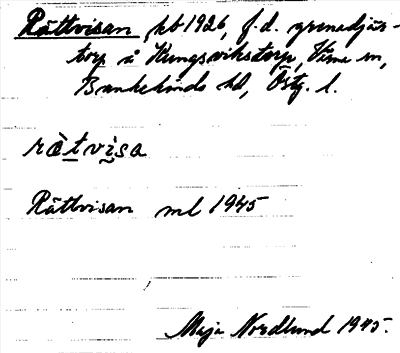 Rättvisan kb 1926, f.d. grenadjärs-
torp å Kungsvikstorp, Värna sn,
Bankekinds hd, Östg. l.
rätvisa
Rättvisan ml 1945
Maja Nordlund 1945.